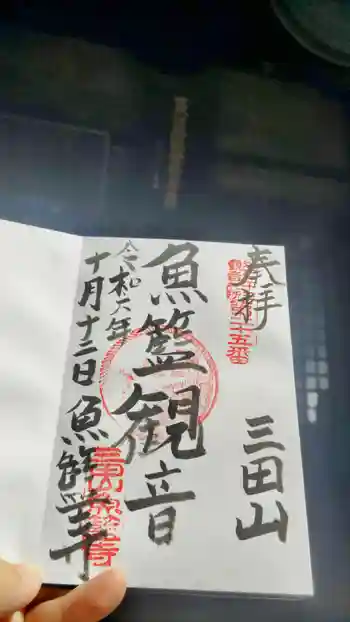 奉拝
三田山
魚籃観音
令和六年
十月十二日
魚籃寺
二十五番
三田山魚籃寺